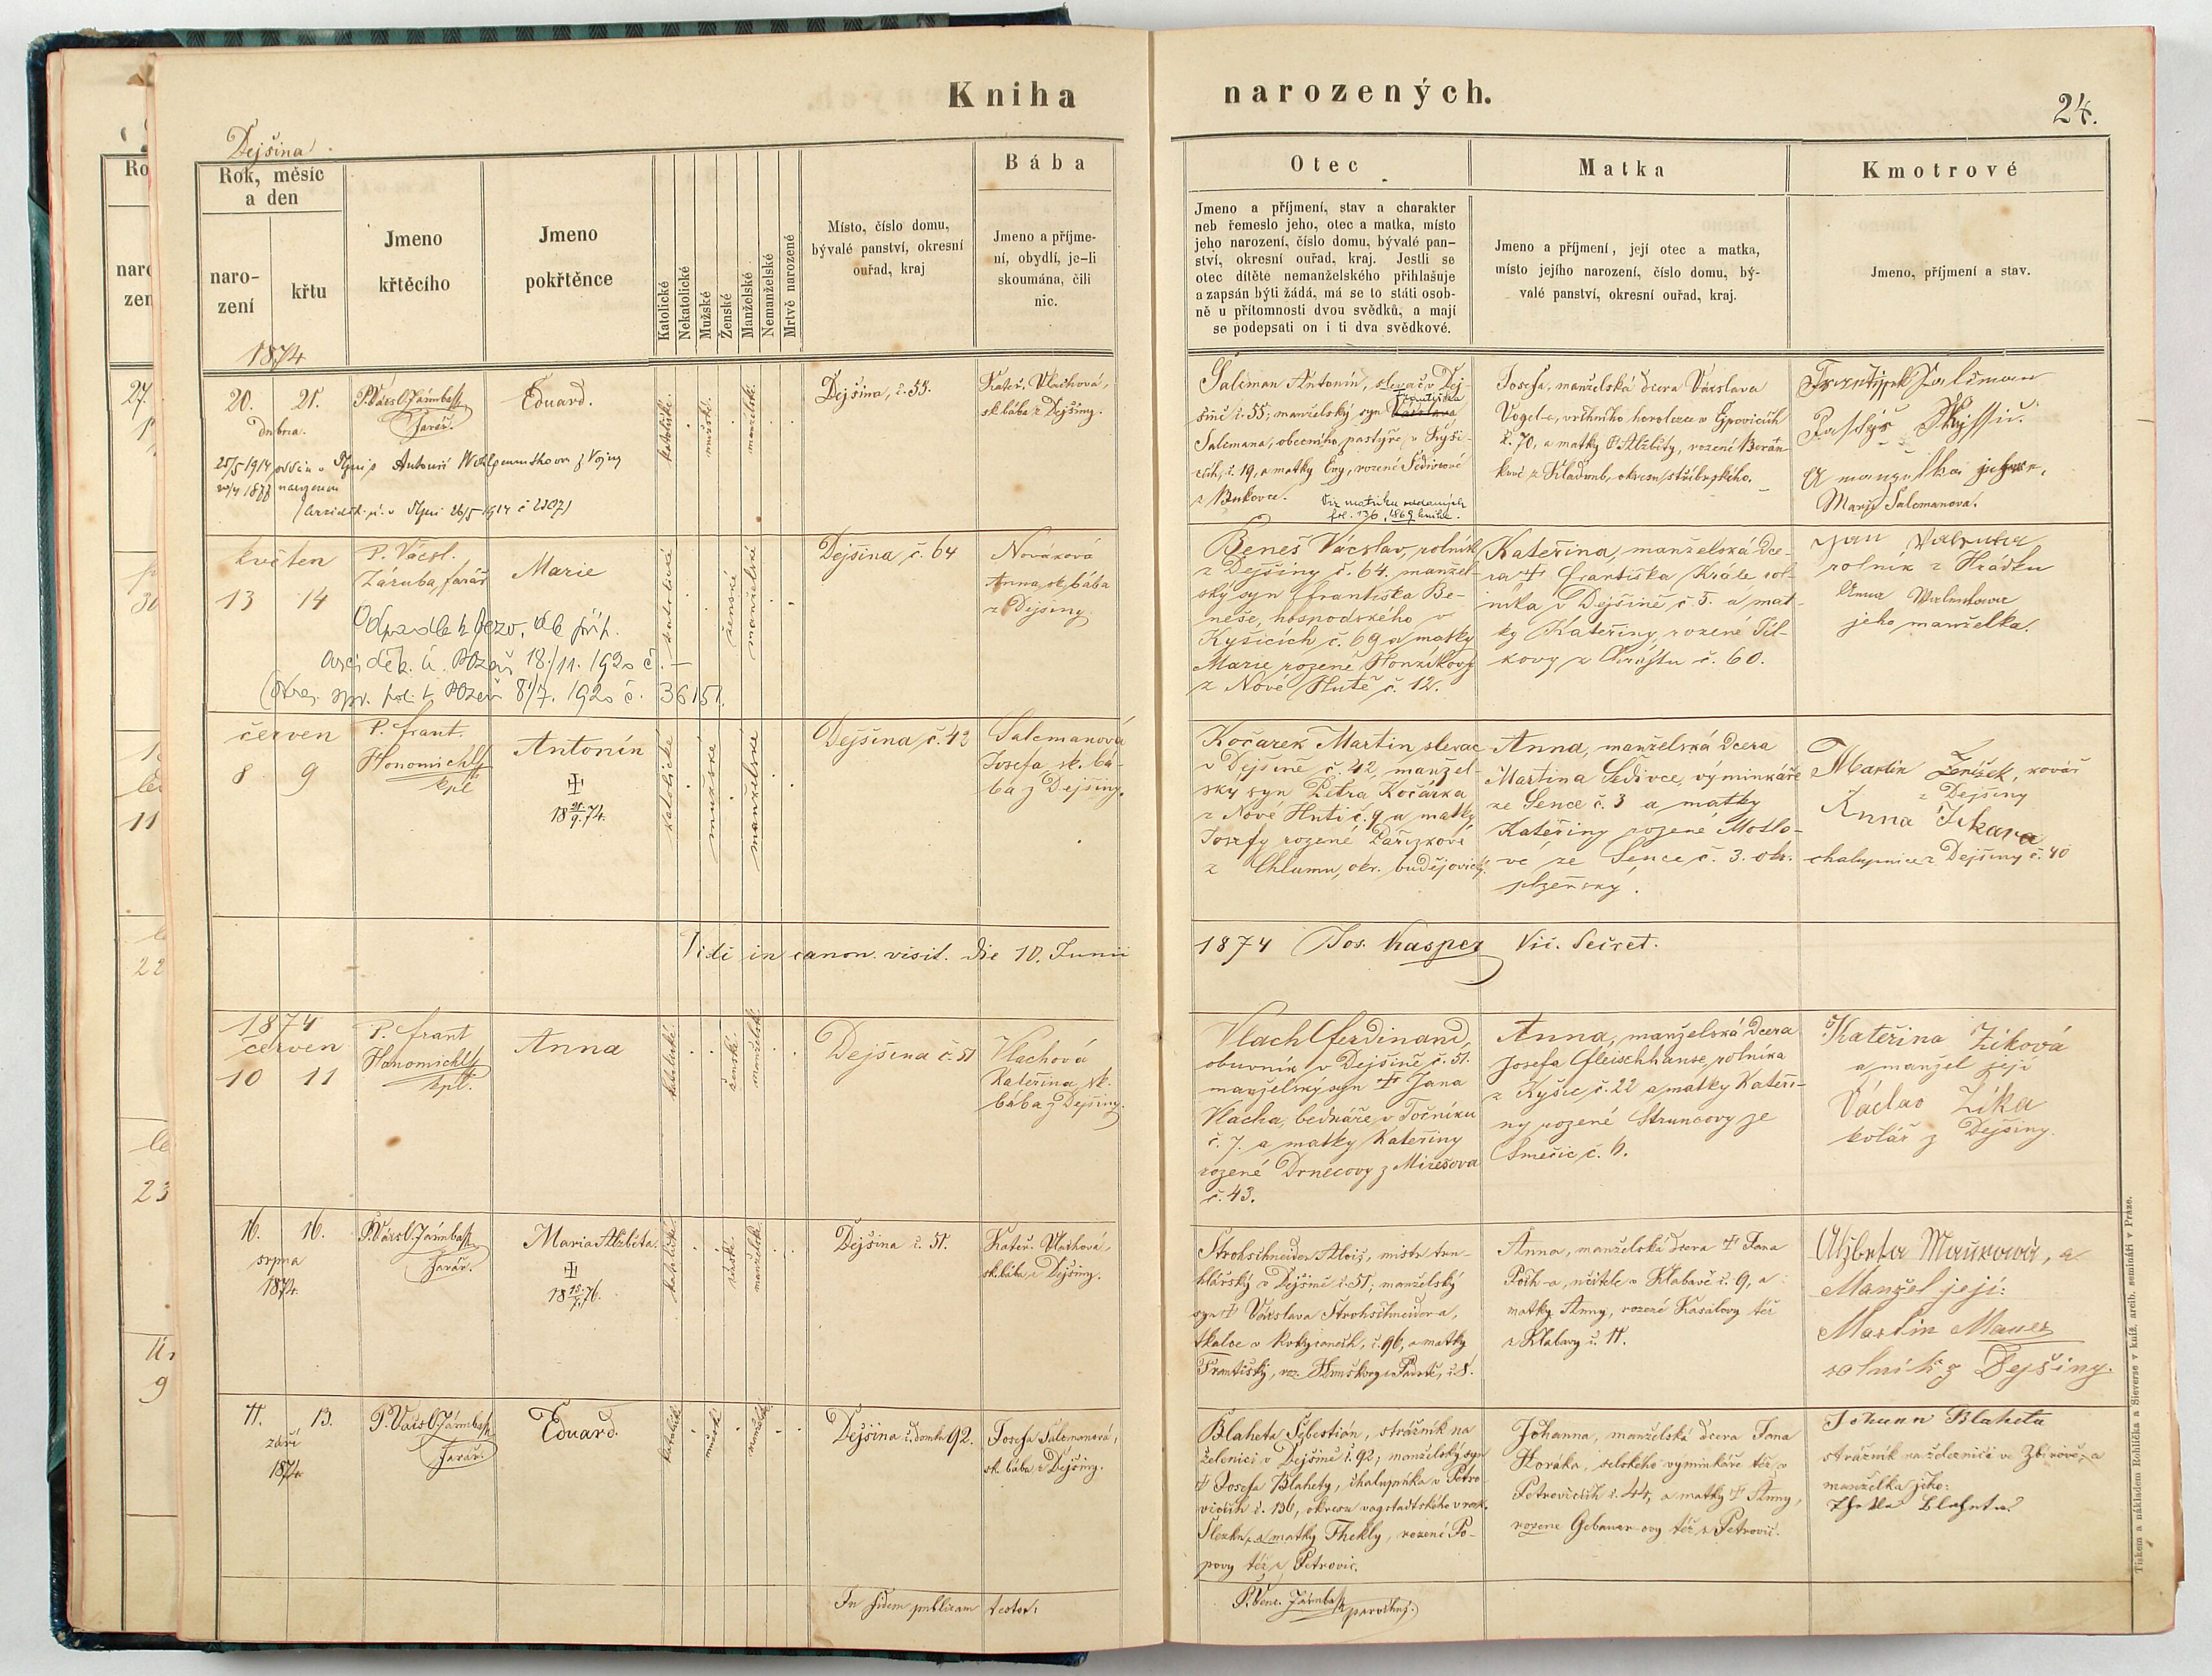 Kniha narozených.
24.
Dejšina.
Rok, měsíc
a den
naro-
zení
křtu
Jmeno
křtěcího
Jmeno
pokřtěnce
Katolické
Nekatolické
Mužské
Ženské
Manželské
Nemanželské
Mrtvě narozené
Místo, číslo domu,
bývalé panství, okresní
ouřad, kraj
Bába
Jmeno a příjme-
ní, obydlí, je-li
skoumána, čili
nic.
Otec
Jmeno a příjmení, stav a charakter
neb řemeslo jeho, otec a matka, místo
jeho narození, číslo domu, bývalé pan-
ství, okresní ouřad, kraj. Jestli se
otec dítěte nemanželského přihlašuje
a zapsán býti žádá, má se to státi osob-
ně u přítomnosti dvou svědků, a mají
se podepsati on i ti dva svědkové.
Matka
Jmeno a příjmení, její otec a matka,
místo jejího narození, číslo domu, bý-
valé panství, okresní ouřad, kraj.
Kmotrové
Jmeno, příjmení a stav.
1874
20. 21.
dubna.
farář.
Eduard.
katolické.
mužské.
manželské.
Dejšina, č. 55.
Kateř. Vlachová,
sk. bába z Dejšiny.
Salcman Antonín, slevač v Dej-
šině č. 55; manželský syn Františka
Salcmana, obecního pastýře v Kyši-
cích, č. 19, a matky Evy, rozené Šedivcové
z Bukovce.
Viz matriku oddaných
fol. 136, 1869 kniha.
Josefa, manželská dcera Václava
Vogel-a, vrchního horolezce v Ejpovicích
č. 70, a matky Alžběty, rozené Berán-
kové z Kladrub, okresu stříbrského.
František Salcman
A manželka jeho.
Marie Salcmanová.
květen
13 14
P. Vácsl.
Záruba, farář
Marie
katolické
ženské
manželské
Dejšina, č. 64
Nováková
Anna, sk. bába
z Dejšiny
Odpadla k bezv. dle příp.
arciděk. ú. Plzeň 18./11. 1920 č. —
(Okres. spr. pol. v Plzeň 8/7. 1920 č. 36151.
Beneš Václav, rolník
z Dejšiny č. 64. manžel-
ský syn Františka Be-
neše, hospodského v
Kyšicích č. 69 a matky
Marie rozené Honzíkovy
z Nové Hutě č. 12.
Kateřina, manželská dce-
ra † Františka Krále rol-
níka v Dejšině č. 5. a mat-
ky Kateřiny, rozené Til-
kovy z Chrástu č. 60.
Jan
rolník z Hrádku
Anna
jeho manželka.
červen
8 9
P. Frant.
Honomichl
kpl
Antonín
18 21/9. 74.
katolické
mužské
manželské
Dejšina č. 42
Salcmanová
Josefa sk. bá-
ba z Dejšiny.
Kočarek Martin slevač
v Dejšině č. 42, manžel-
ský syn Petra Kočárka
z Nové Huti č. 9 a matky
Josefy rozené Pařízkové
z Chlumu, okr. budějovický.
Anna, manželská dcera
Martina Šedivce, výminkáře
ze Sence č. 3 a matky
Kateřiny rozené Motlo-
vé ze Sence č. 3. okr.
plzeňský.
Martin Ženíšek, kovář
z Dejšiny
chalupnice z Dejšiny č. 40
Vidi in canon. visit. die 10. Junii
1874 Jos. Kasper Vic. Secret.
1874
červen
10 11
P. Frant
Honomichl
kpl.
Anna
katolické.
ženské.
manželské.
Dejšina č. 51
Vlachová
Kateřina sk.
bába z Dejšiny.
Vlach Ferdinand,
obuvník v Dejšině č. 51.
manželský syn † Jana
Vlacha, bednáře v Točníku
č. 7. a matky Kateřiny
rozené Drnecovy z Mirešova
č. 43.
Anna, manželská dcera
Josefa Fleischhanse, rolníka
z Kyšic č. 22 a matky Kateři-
ny rozené Struncovy ze
Smečic č. 6.
Kateřina Ziková
a manžel její
Václav Zíka
kolář z Dejšiny.
16. 16.
srpna
1874.
farář.
Maria Alžběta.
18 15/7. 76.
katolické
ženské.
manželské.
Dejšina č. 51.
Kateř. Vlachová,
sk. bába z Dejšiny.
Strohschneider Alois, mistr tru-
hlářský v Dejšině č. 51; manželský
syn † Václava Strohschneider-a,
tkalce v Rokycanech, č. 96, a matky
Anna, manželská dcera † Jana
matky Anny, rozené Kasalovy též
z Klabavy č. 11.
Alžběta Mauerová, a
Manžel její:
Martin Mauer
rolník z Dejšiny.
11. 13.
září
1874.
farář.
Eduard.
katolické
mužské
manželské
Dejšina č. domku 92.
Josefa Salcmanová,
sk. bába z Dejšiny.
Blaheta Šebestián, strážník na
železnici v Dejšině č. 92; manželský syn
† Josefa Blahety, chalupníka v Petro-
vicích č. 136, okresu vagstadtského v rak.
Slezku, a matky Thekly, rozené Po-
povy též z Petrovic.
Johanna, manželská dcera Jana
Horáka, selského vyminkáře též v
Petrovicích č. 44, a matky † Anny,
rozené Gebauer-ovy též z Petrovic.
Johann Blaheta
strážník na železnici ve Zbirově, a
manželka jeho:
Thekla Blaheta
In fidem publicam testor:
parochus.
Tiskem a nákladem Rohlíčka a Sieverse v kníž. arcib. semináři v Praze.